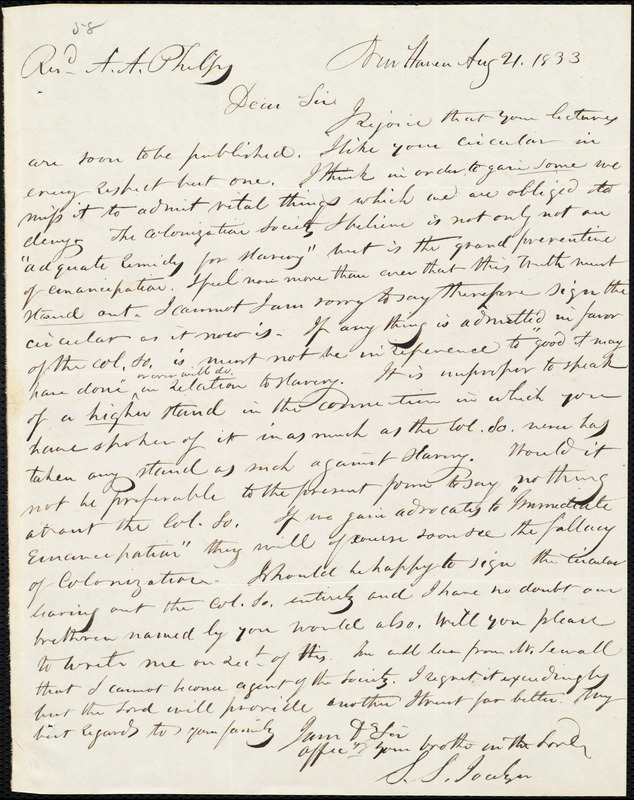 58
Revd. A. A. Phelps
New Haven Aug 21. 1833
Dear Sir
I rejoice that your lectures
are soon to be published. I like your circular in
every respect but one. I think in order to gain some we
miss it to admit vital things which we are obliged to
deny. The Colonization Society I believe is not only not an
"adequate remidy for slavery" but is the grand preventive
of emancipation. I feel now more than ever that this truth must
stand out. I cannot I am sorry to say therefore sign the
circular as it now is. If any thing is admitted in favor
of the Col. So. is must not be in reference to "good it may
have done" or ever will do, in relation to slavery. It is improper to speak
of a higher stand in the connection in which you
have spoken of it in as much as the Col. So. never has
taken any stand as such against slavery. Would it
not be preferable to the present form to say nothing
about the Col. So. If we gain advocates to "Immediate
Emancipation" they will of course soon see the fallacy
of Colonization. I should be happy to sign the circular
leaving out the Col. So. entirely and I have no doubt our
brethren named by you would also. Will you please
to write me on rect. of this. You will learn from Mr. Sewall
that I cannot become agent of the Society. I regret it exceedingly
but the Lord will provide another I trust far better. My
best regards to your family
I am D Sir
affecly your brother in the Lord
S. S. Jocelyn